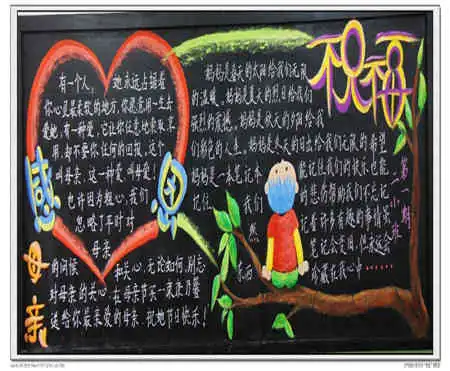 感恩
母亲
祝福
有一个人，她永远占据着
你心里最柔软的地方，你愿意用一生去
爱她；有一种爱，它让你任意地索取享
用，却不要你任何的回报。这个
人叫母亲，这一种爱，叫母爱！
也许因为粗心，我们
忽略了平时对
母亲
的问候和关心，无论如何，别忘
对母亲的关心。在母亲节来
送给你最亲爱的母亲，祝她节日快乐！
妈妈是春天的太阳给我们无限
的温暖。妈妈是夏天的烈日给我们
强烈的震撼。妈妈是秋天的夕阳给我
们彩色的人生。妈妈是冬天的日出给我们无限的希望
妈妈是一本笔记本能记住我们的快乐也能
记住我们的悲伤
笔记会变旧，但永远会
珍藏在我心中……
第一期